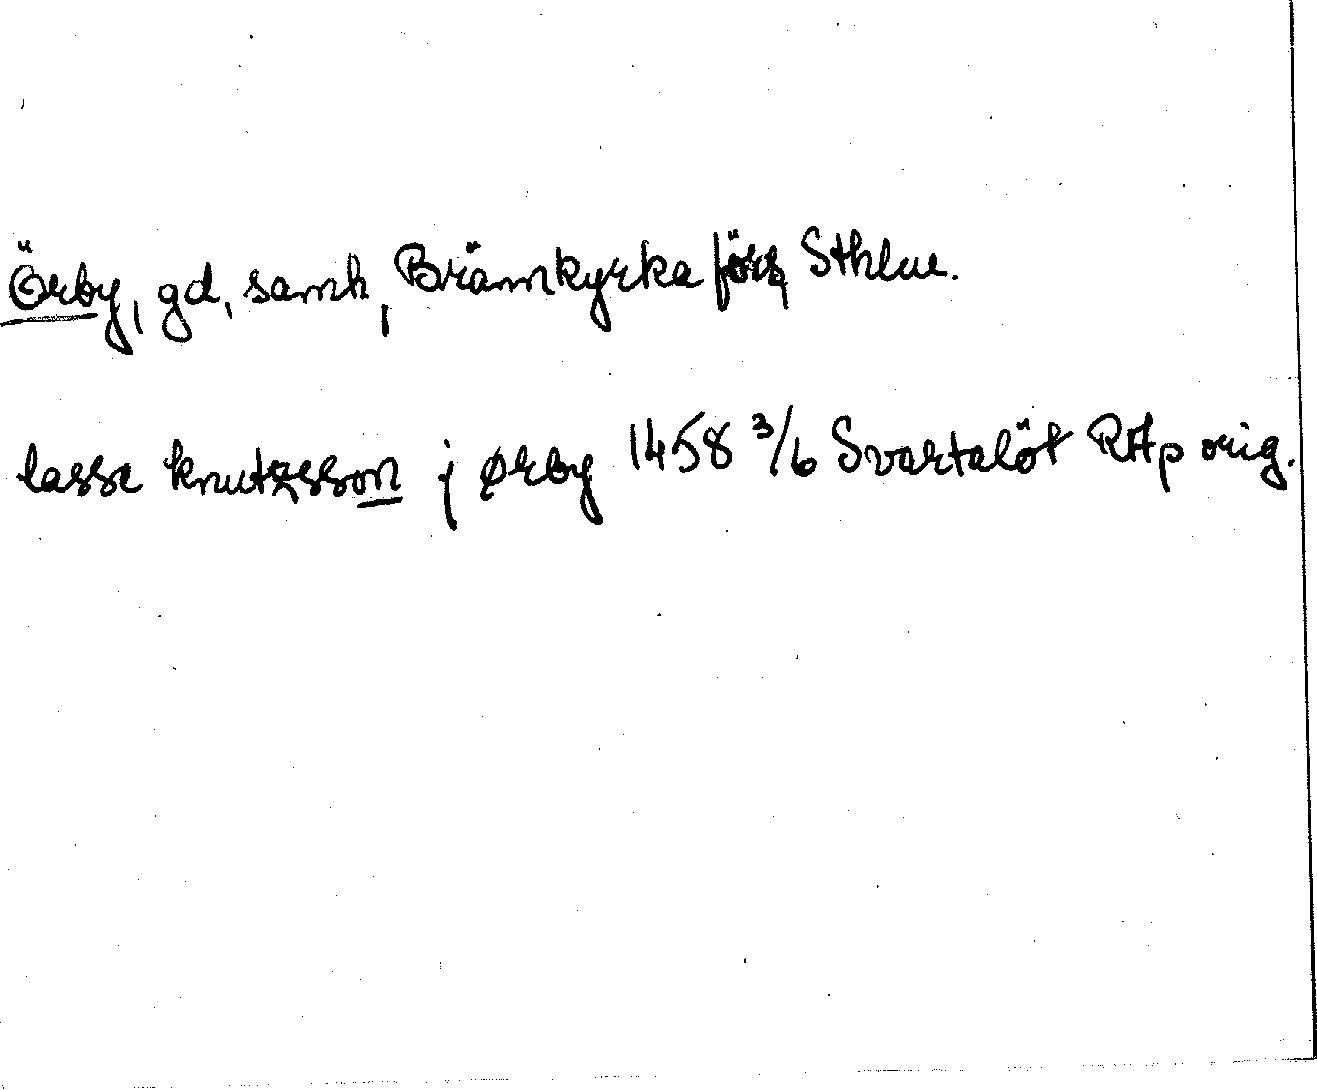 Örby, gd, samh, Brännkyrka förs, Sthlm.
lasse knutzsson j ørby 1458 3/6 Svartalöt RAp orig.